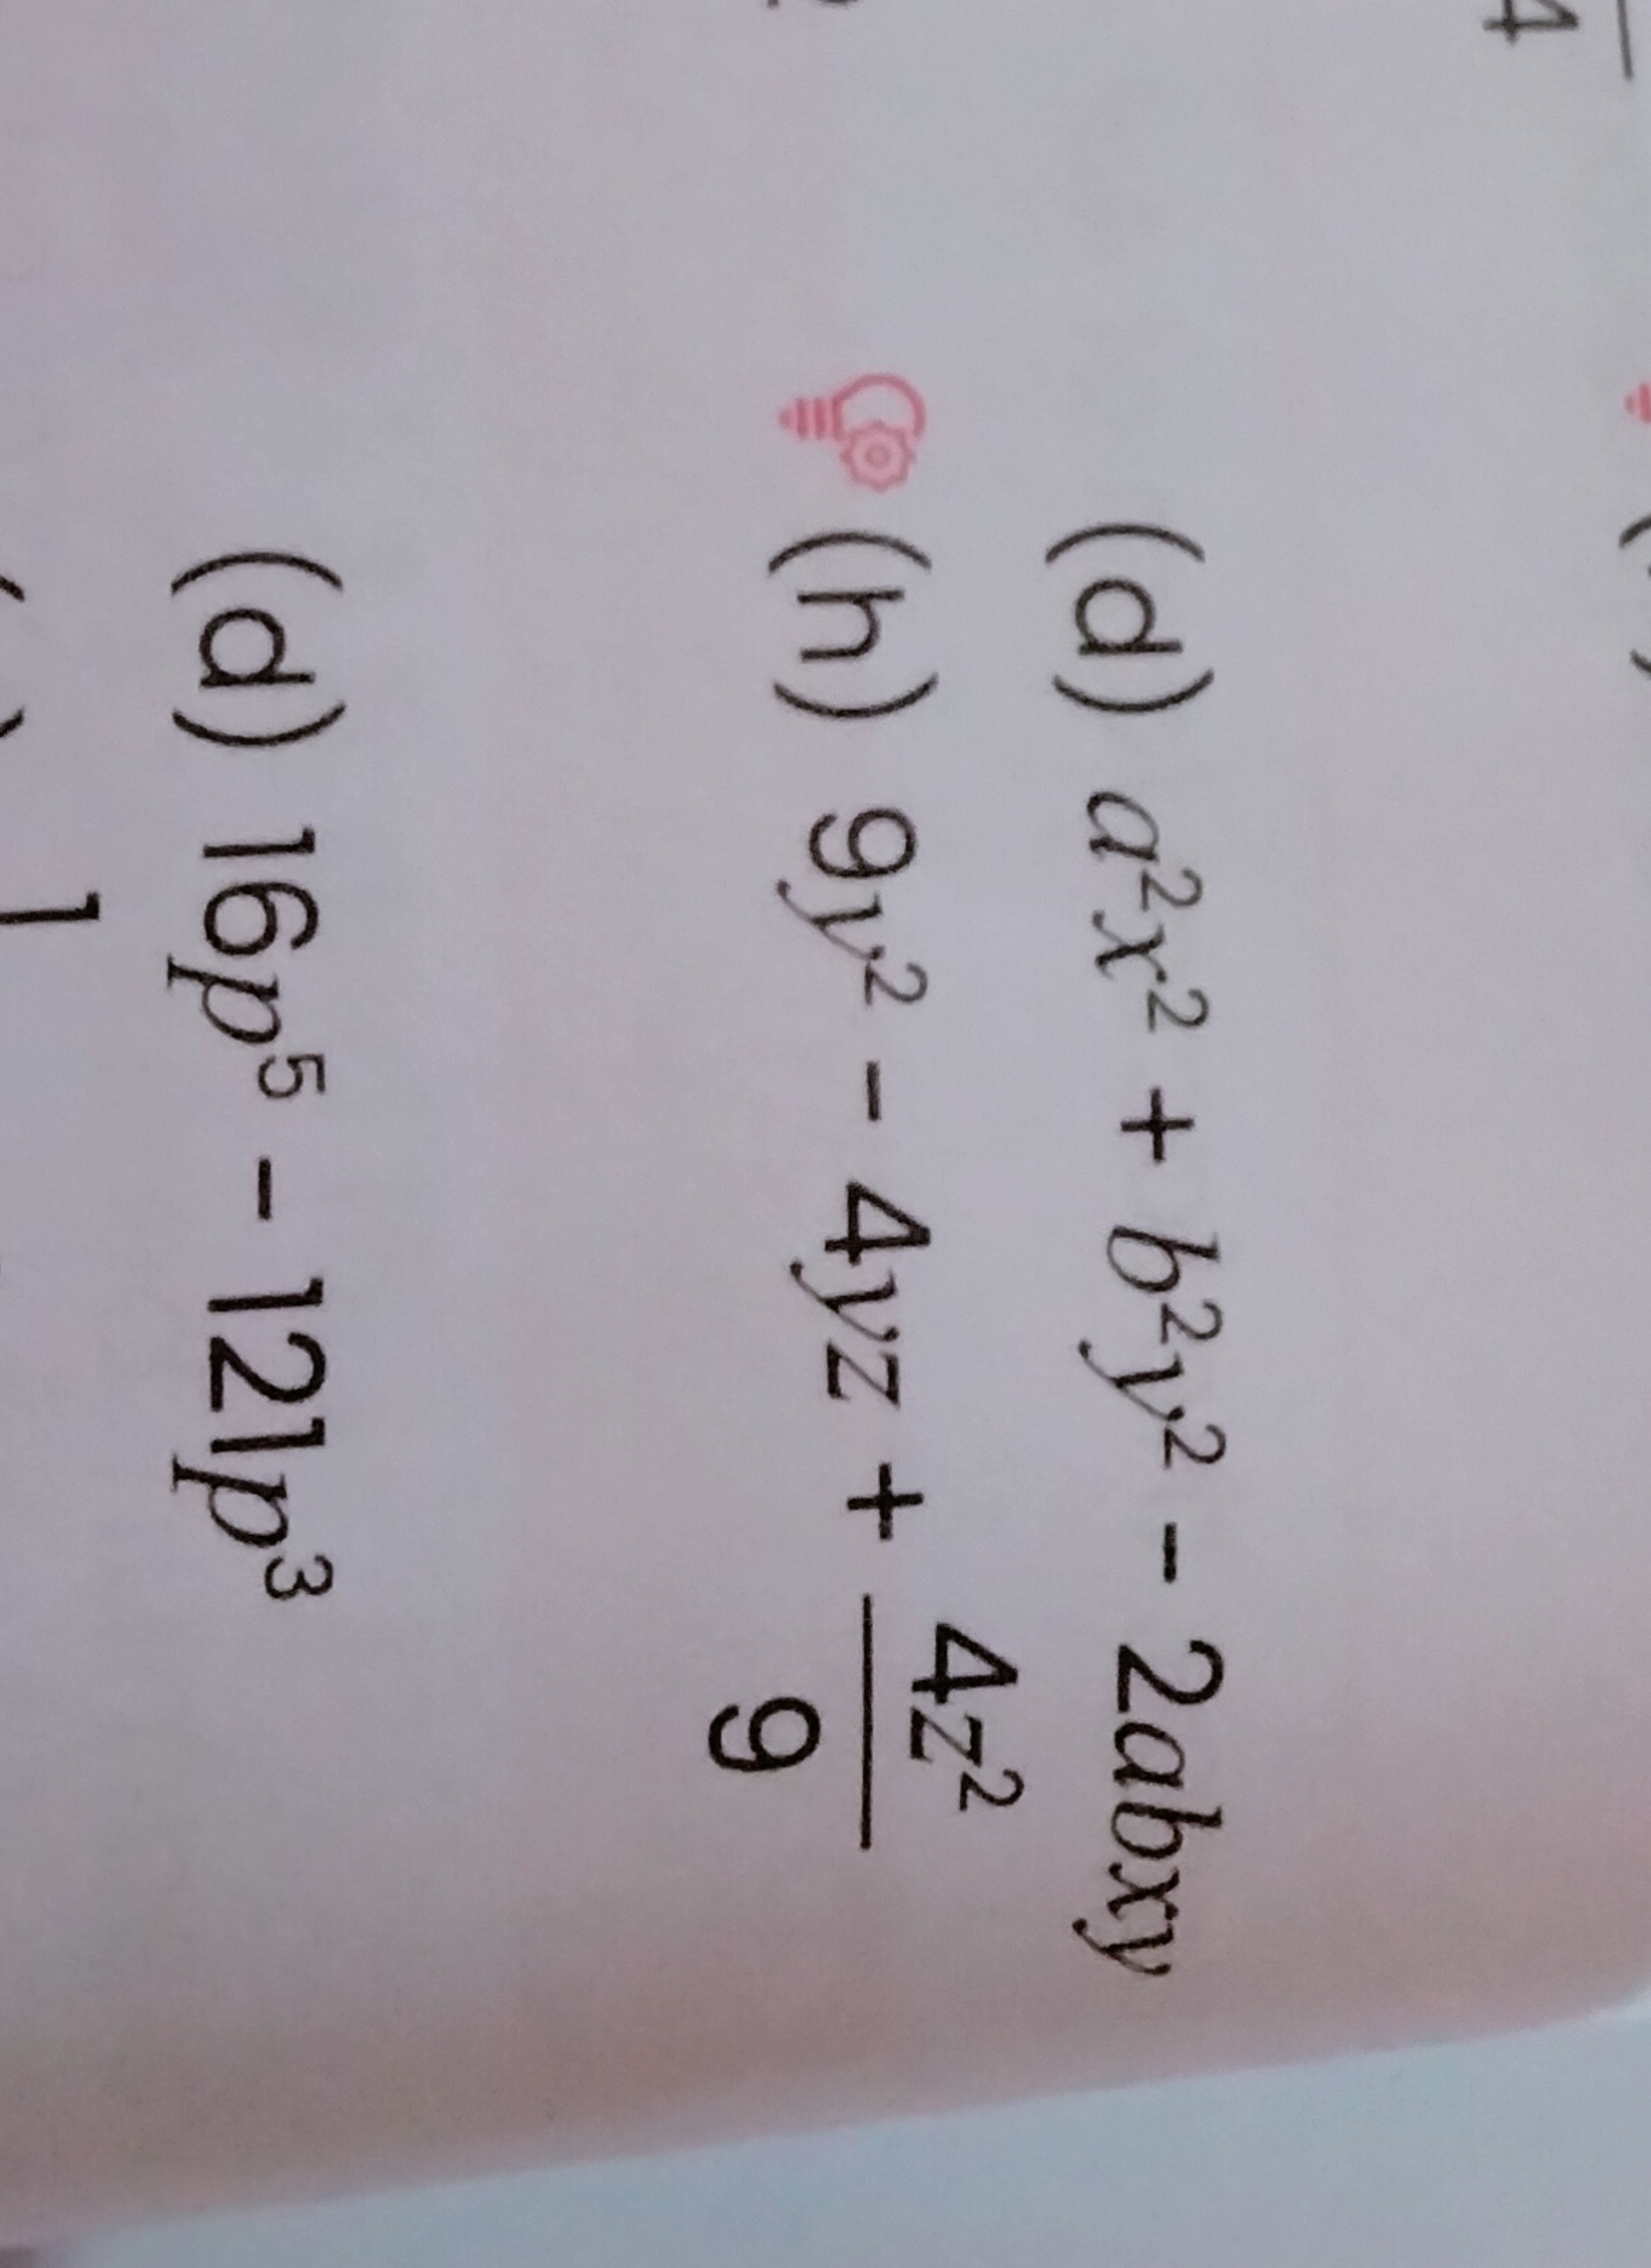 4
(d) a²x² + b²y² - 2abxy
(h) 9y² - 4yz + 4z²/9
(d) 16p⁵ - 121p³
1